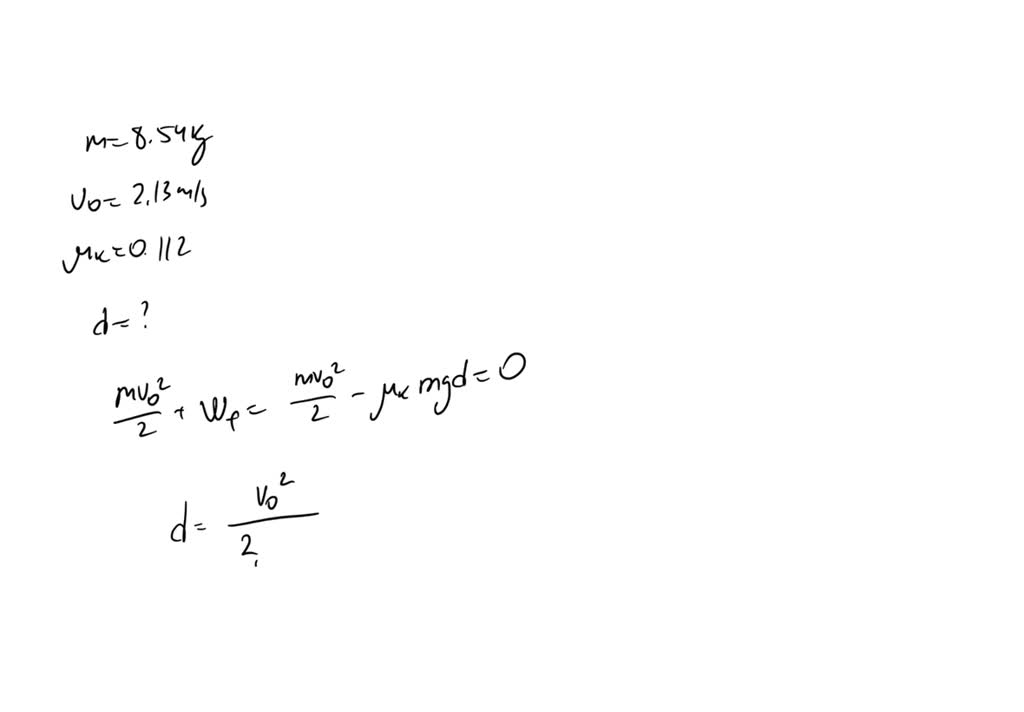 m=8.54kg
v₀=2.13m/s
μₖ=0.112
d=?
mv₀²/2 + W_f = mv₀²/2 - μₖmgd=0
d= v₀²/2